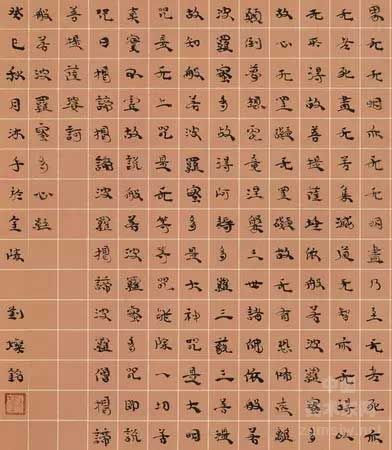 界无无明亦无无明盡乃至无老死亦
无老死盡无苦集滅道无智亦无得以
无所得故菩提薩埵依般若波羅蜜多
故心无罣礙无罣礙故无有恐怖遠離
顛倒夢想究竟涅槃三世諸佛依般若
波羅蜜多故得阿耨多羅三藐三菩提
故知般若波羅蜜多是大神咒是大明
咒是无上咒是无等等咒能除一切苦
真實不虛故說般若波羅蜜多咒即說
咒曰揭諦揭諦波羅揭諦波羅僧揭諦
菩提薩婆訶
般若波羅蜜多心經
癸巳秋月沐手於金陵 劉燦銘